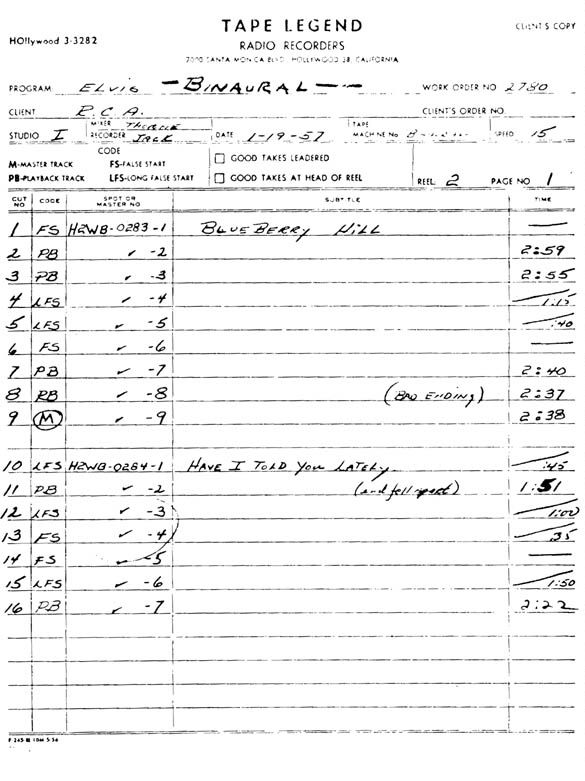 TAPE LEGEND
CLIENT'S COPY
HOllywood 3-3282
RADIO RECORDERS
7000 SANTA MONICA BLVD., HOLLYWOOD 38, CALIFORNIA
PROGRAM ELVIS — BINAURAL — WORK ORDER NO 2780
CLIENT R.C.A. CLIENT'S ORDER NO.
STUDIO I MIXER THORNE RECORDER JACK DATE 1-19-57 TAPE MACHINE No SPEED 15
CODE
M-MASTER TRACK FS-FALSE START GOOD TAKES LEADERED
PB-PLAYBACK TRACK LFS-LONG FALSE START GOOD TAKES AT HEAD OF REEL REEL 2 PAGE NO 1
CUT NO CODE SPOT OR MASTER NO SUBTITLE TIME
1 FS H2WB-0283-1 BLUEBERRY HILL —
2 PB ✓ -2 2:59
3 PB ✓ -3 2:55
4 LFS ✓ -4 1:15
5 LFS ✓ -5 :40
6 FS ✓ -6 —
7 PB ✓ -7 2:40
8 PB ✓ -8 (BAD ENDING) 2:37
9 M ✓ -9 2:38
10 LFS H2WB-0284-1 HAVE I TOLD YOU LATELY :45
11 PB ✓ -2 1:51
12 LFS ✓ -3 1:00
13 FS ✓ -4 35
14 FS ✓ -5 —
15 LFS ✓ -6 1:50
16 PB ✓ -7 2:22